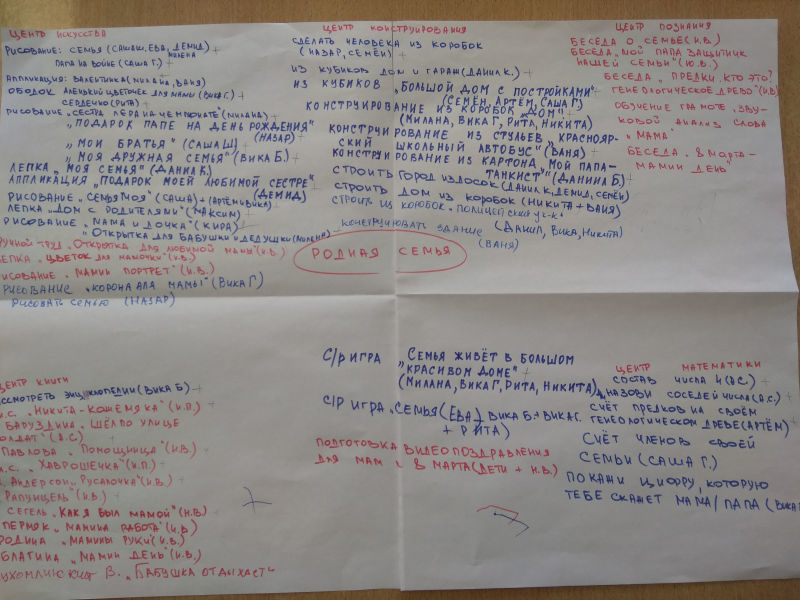 ЦЕНТР ИСКУССТВА
РИСОВАНИЕ: СЕМЬЯ (САША Ш., ЕВА, ДЕМИД) +
МИЛЕНА
ПАПА НА ВОЙНЕ (САША Г.) +
АППЛИКАЦИЯ: ВАЛЕНТИНКА (МИЛАНА, ВАНЯ)
ОБОДОК АЛЕНЬКИЙ ЦВЕТОЧЕК ДЛЯ МАМЫ (ВИКА Г.) +
СЕРДЕЧКО (РИТА)
РИСОВАНИЕ „СЕСТРА ЛЕРА НА ЧЕМПИОНАТЕ" (МИЛАНА)
„ПОДАРОК ПАПЕ НА ДЕНЬ РОЖДЕНИЯ"
(НАЗАР)
„МОИ БРАТЬЯ" (САША Ш)
„МОЯ ДРУЖНАЯ СЕМЬЯ" (ВИКА Б.)
ЛЕПКА „МОЯ СЕМЬЯ" (ДАНИЛ К.)
АППЛИКАЦИЯ „ПОДАРОК МОЕЙ ЛЮБИМОЙ СЕСТРЕ"
(ДЕМИД)
РИСОВАНИЕ „СЕМЬЯ МОЯ" (САША) + (АРТЁМ + ВИКА)
ЛЕПКА „ДОМ С РОДИТЕЛЯМИ" (МАКСИМ)
РИСОВАНИЕ „МАМА И ДОЧКА" (КИРА)
„ОТКРЫТКА ДЛЯ БАБУШКИ И ДЕДУШКИ (МИЛЕНА)
УЧНОЙ ТРУД „ОТКРЫТКА ДЛЯ ЛЮБИМОЙ МАМЫ" (И.В.)
ЕПКА „ЦВЕТОК ДЛЯ МАМОЧКИ" (И.В.)
ИСОВАНИЕ „МАМИН ПОРТРЕТ" (И.В.)
РИСОВАНИЕ „КОРОНА ДЛЯ МАМЫ" (ВИКА Г)
РИСОВАТЬ СЕМЬЮ (НАЗАР)
ЦЕНТР КОНСТРУИРОВАНИЯ
СДЕЛАТЬ ЧЕЛОВЕКА ИЗ КОРОБОК
(НАЗАР, СЕМЁН)
ИЗ КУБИКОВ ДОМ И ГАРАЖ (ДАНИЛ К.)
ИЗ КУБИКОВ „БОЛЬШОЙ ДОМ С ПОСТРОЙКАМИ"
(СЕМЁН, АРТЁМ, САША Г)
КОНСТРУИРОВАНИЕ ИЗ КОРОБОК „ДОМ"
(МИЛАНА, ВИКА Г, РИТА, НИКИТА)
КОНСТРУИРОВАНИЕ ИЗ СТУЛЬЕВ „КРАСНОЯР-
СКИЙ ШКОЛЬНЫЙ АВТОБУС" (ВАНЯ)
КОНСТРУИРОВАНИЕ ИЗ КАРТОНА „МОЙ ПАПА-
ТАНКИСТ" (ДАНИИЛ Б.)
СТРОИТЬ ГОРОД ИЗ ДОСОК (ДАНИЛ К, ДЕМИД, СЕМЁН)
СТРОИТЬ ДОМ ИЗ КОРОБОК (НИКИТА + ВАНЯ)
СТРОИТЬ ИЗ КОРОБОК - ПОЛИЦЕЙСКИЙ УЧ-К
КОНСТРУИРОВАТЬ ЗДАНИЕ (ДАНИЛ, ВИКА, НИКИТА)
(ВАНЯ)
ЦЕНТР ПОЗНАНИЯ
БЕСЕДА О СЕМЬЕ (И.В.)
БЕСЕДА „МОЙ ПАПА ЗАЩИТНИК
НАШЕЙ СЕМЬИ" (Ю.В.)
БЕСЕДА „ПРЕДКИ. КТО ЭТО?
ГЕНЕОЛОГИЧЕСКОЕ ДРЕВО" (И.В)
ОБУЧЕНИЕ ГРАМОТЕ „ЗВУ-
КОВОЙ АНАЛИЗ СЛОВА
„МАМА"
БЕСЕДА „8 МАРТА-
МАМИН ДЕНЬ"
РОДНАЯ СЕМЬЯ
ЦЕНТР КНИГИ
ССМОТРЕТЬ ЭНЦИКЛОПЕДИИ (ВИКА Б) +
Н.С. „НИКИТА-КОЖЕМЯКА" (И.П.)
БАРУЗДИНА „ШЁЛ ПО УЛИЦЕ
ОЛДАТ" (А.С.)
ПАВЛОВА „ПОМОЩНИЦА" (И.В.)
„ХАВРОШЕЧКА" (И.П.)
АНДЕРСОН „РУСАЛОЧКА" (И.В.)
РАПУНЦЕЛЬ" (И.В.)
СЕГЕЛЬ „КАК Я БЫЛ МАМОЙ" (Н.В)
ПЕРМЯК „МАМИНА РАБОТА" (И.В)
РОДИНА „МАМИНЫ РУКИ" (И.В.)
БЛАГИНА „МАМИН ДЕНЬ" (И.В.)
УХОМЛИНСКИЙ В. „БАБУШКА ОТДЫХАЕТ"
С/Р ИГРА „СЕМЬЯ ЖИВЁТ В БОЛЬШОМ
КРАСИВОМ ДОМЕ"
(МИЛАНА, ВИКА Г, РИТА, НИКИТА)
С/Р ИГРА „СЕМЬЯ (ЕВА) + ВИКА Б. + ВИКА Г.
+ РИТА)
ПОДГОТОВКА ВИДЕО ПОЗДРАВЛЕНИЯ
ДЛЯ МАМ С 8 МАРТА (ДЕТИ + Н.В.)
ЦЕНТР МАТЕМАТИКИ
СОСТАВ ЧИСЛА 4 (А.С.)
НАЗОВИ СОСЕДЕЙ ЧИСЛА (А.С.)
СЧЁТ ПРЕДКОВ НА СВОЁМ
ГЕНЕОЛОГИЧЕСКОМ ДРЕВЕ (АРТЁМ)
СЧЁТ ЧЛЕНОВ СВОЕЙ
СЕМЬИ (САША Г.)
ПОКАЖИ ЦИФРУ, КОТОРУЮ
ТЕБЕ СКАЖЕТ МАМА/ПАПА (ВИКА